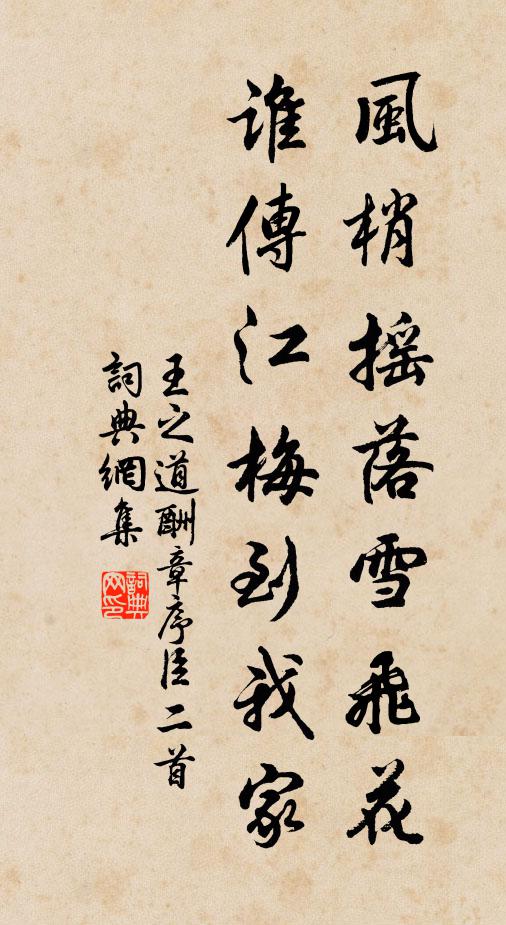 風梢搖落雪飛花
誰傳江梅到我家
王之道酬章序臣二首
詞典網集
詞典网印